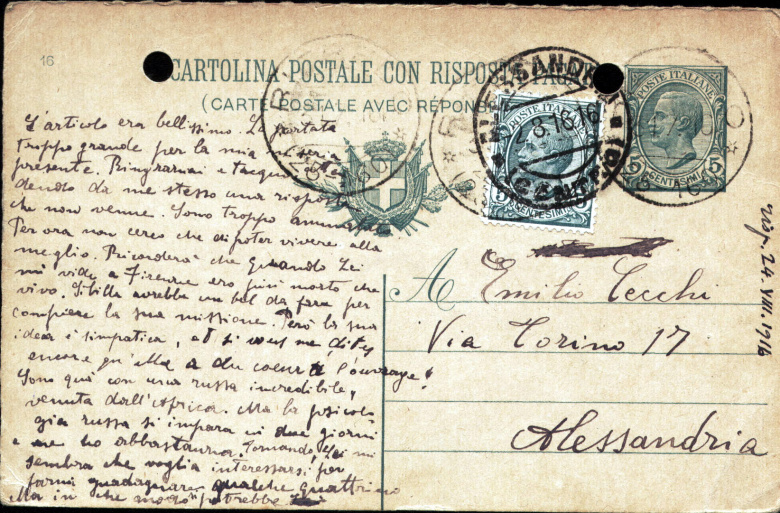 16
CARTOLINA POSTALE CON RISPOSTA
(CARTE POSTALE AVEC RÉPONSE
POSTE ITALIANE
5 CENTESIMI 5
POSTE ITALIANE
CENTESIMI
ALESSANDRIA
8.16.16
L'articolo era bellissimo. La portata
troppo grande per la mia misera
presente. Ringraziai e tacqui
dendo da me stesso una risposta
che non venne. Sono troppo
Per ora non cerco che di poter vivere alla
meglio. Ricorderà che quando Lei
mi vide a Firenze ero più morto che
vivo. Sibilla avrebbe un bel da fare per
compiere la sua missione. Però la sua
idea è simpatica, et si vous me dites
encore qu'Ella a du coeur à l'ouvrage!
Sono quì con una russa incredibile,
venuta dall'Africa. Ma la psicolo-
gia russa si impara in due giorni
e ne ho abbastanza. Tornando Lei mi
sembra che voglia interessarsi per
farmi guadagnare qualche quattrino
Ma in che modo potrebbe
A Emilio Cecchi
Via Torino 17
Alessandria
24. VIII. 1916